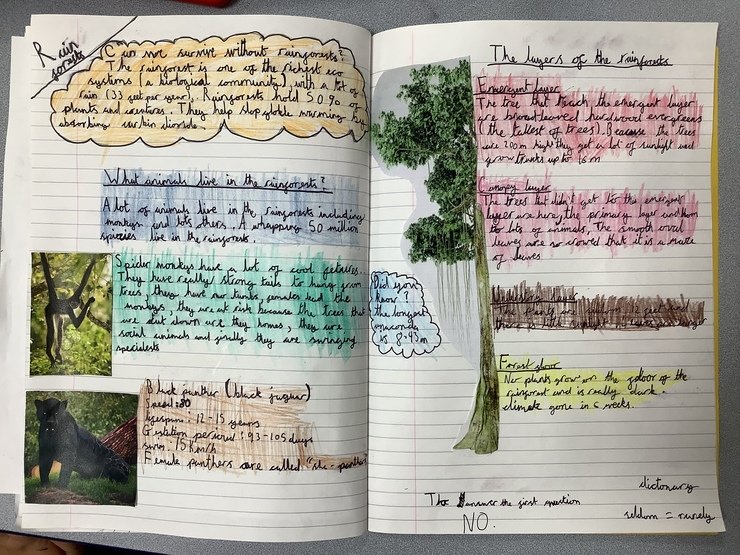 Rain
forests
Can we survive without rainforests?
The rainforest is one of the richest eco
systems (a biological community), with a lot of
rain (33 feet per year). Rainforests hold 50.0% of
plants and creatures. They help stop globle warming by
absorbing carbin dioxide.
What animals live in the rainforests?
A lot of animals live in the rainforests including
monkeys and lots others. A whapping 50 million
species live in the rainforests
Spider monkeys have a lot of cool
They have really strong tails to hang from
trees, they have no females lead the
monkeys, they are at risk because the trees that
are cut down are they homes, they are
social animals and they are swinging
specialists
Black panther (black jaguar)
: 80
: 12-15 years
Gestation : 93-105 days
swim: 15 km/h
Female panthers are called "she-panther"
Did you
know?
the longest
anaconda
is 8.43m
The layers of the rainforests
Emergent layer
The trees that reach the emergent layer
are broad-leaved hardwood evergreens
(the tallest of trees). Because the trees
are 200m high they get a lot of sunlight and
grow trunks up to 16 m
Canopy layer
The trees that didn't get to the emergent
layer are here, the primary layer and home
to lots of animals, The smooth oval
leaves are so crowd that it is a maze
of leaves
layer
The plants are 12 feet and
there is little sunlight
Forest floor
No plants grow on the floor of the
rainforest and is really dark.
climate gone in 6 weeks.
The answer the first question
NO.
dictonary
seldom = rarely